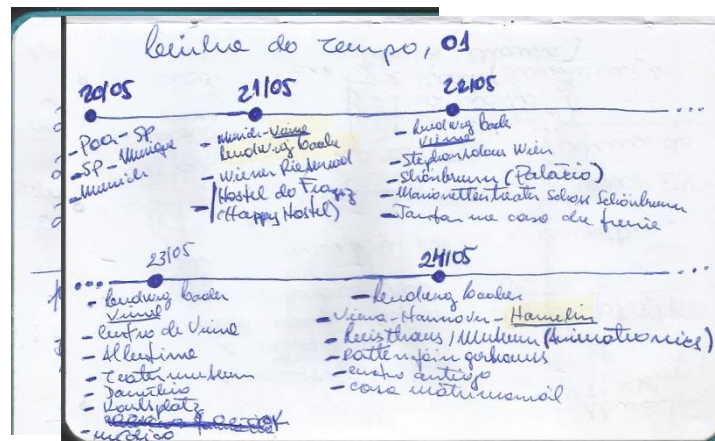 Linha do tempo, 01
20/05
- Poa - SP
- SP - Munique
- Munich
21/05
- Munich - Viena
Ludwig Boder
- Wiener Riesenrad
- Hostel do
(Happy Hostel)
22/05
- Ludwig
Viena
- Stephansdom Wien
- Shönbrunn (Palácio)
- Marionettentheater Schloss Schönbrunn
- Jantar na casa da
...
23/05
... 
- Ludwig
Viena
- Centro de Viena
- Albertina
- Teatermuseum
- Danúbio
- Karlsplatz
- médico
24/05
...
- Ludwig
- Viena - Hannover - Hamelin
- / Museum (Animatronics)
- Rattenfängerhaus
- centro antigo
- casa matrimonial